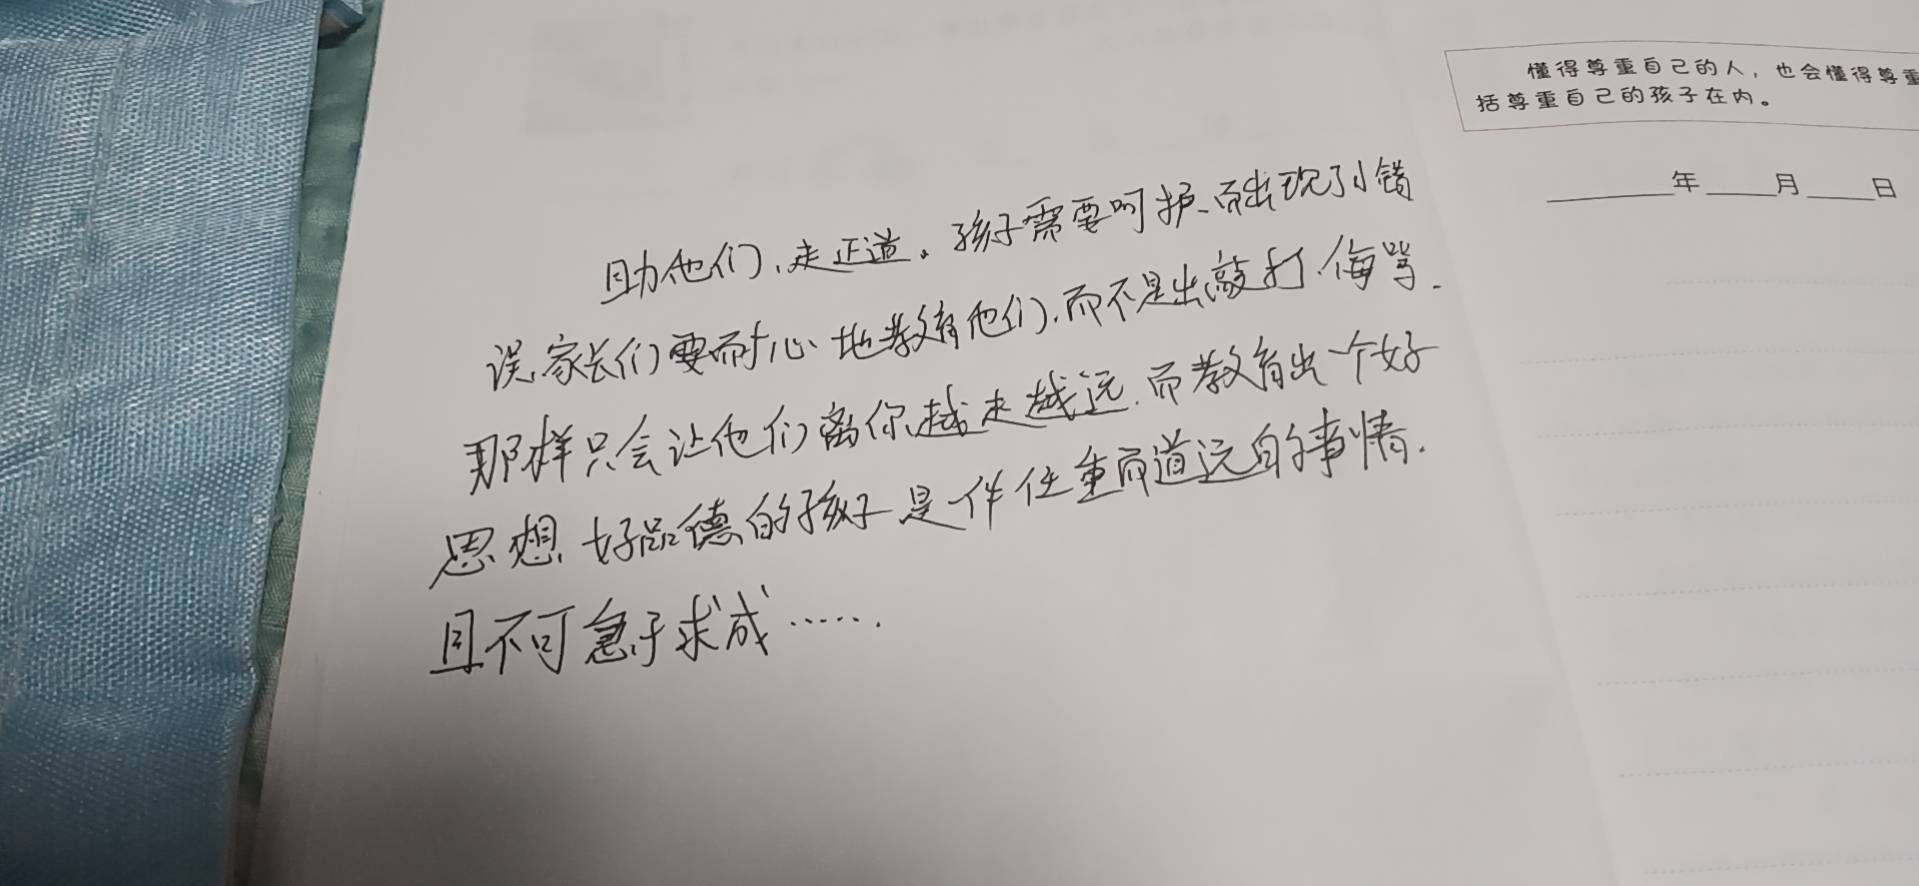 懂得尊重自己的人，也会懂得尊重
括尊重自己的孩子在内。
年 月 日
助他们、走正道。孩子需要呵护、而出现了小错
误、家长们要耐心地教育他们、而不是出敲打、侮骂.
那样只会让他们离你越走越远.而教育出一个好
思想、好品德的孩子是一件任重而道远的事情.
且不可急于求成…….